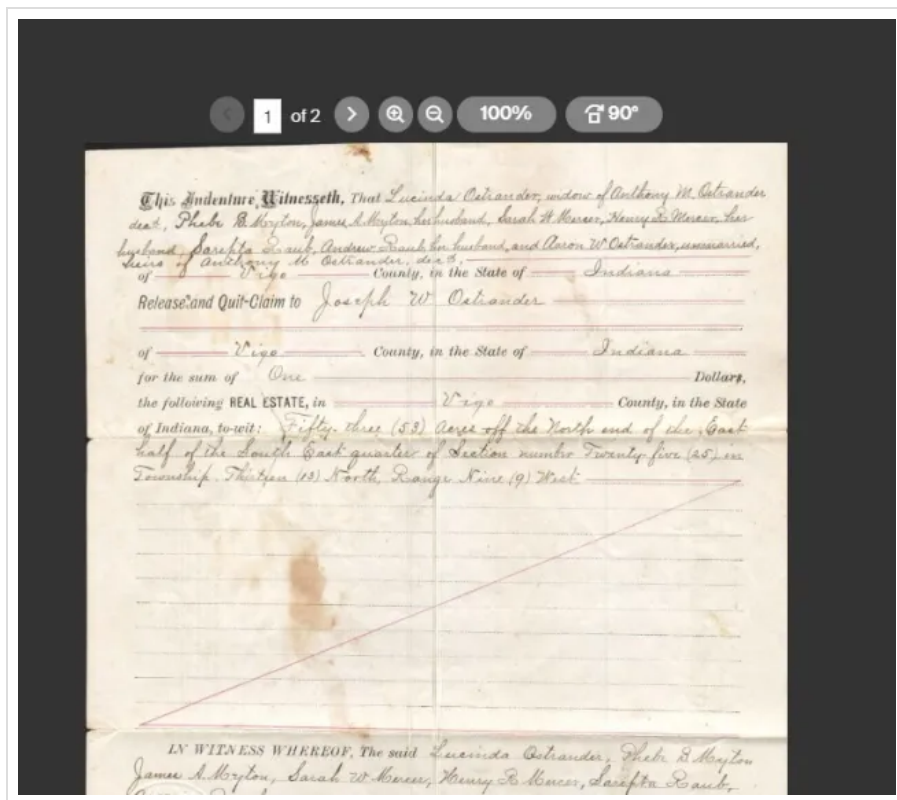 1 of 2 100% 90°
This Indenture Witnesseth, That Lucinda Ostrander, widow of Anthony M. Ostrander
decd, Phebe B. Moyton, James A. Moyton, her husband, Sarah W. Mercer, Henry R. Mercer, her
husband, Sarepta Raub, Andrew Raub her husband, and Aaron W Ostrander, unmarried,
heirs of Anthony M Ostrander, decd,
of Vigo County, in the State of Indiana
Release and Quit-Claim to Joseph W Ostrander
of Vigo County, in the State of Indiana
for the sum of One Dollars,
the following REAL ESTATE, in Vigo County, in the State
of Indiana, to-wit: Fifty-three (53) Acres off the North end of the East
half of the South East quarter of Section number Twenty five (25) in
Township Thirteen (13) North, Range Nine (9) West
IN WITNESS WHEREOF, The said Lucinda Ostrander, Phebe B Moyton
James A. Moyton, Sarah W Mercer, Henry R Mercer, Sarepta Raub,